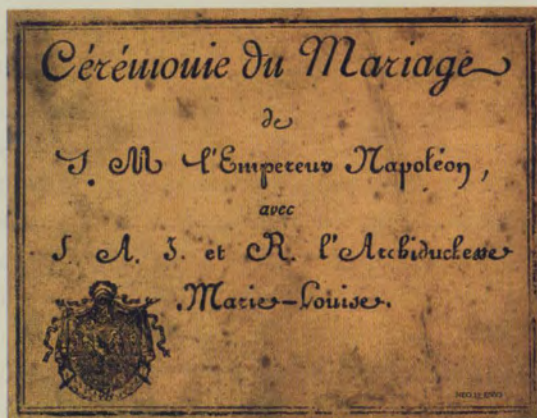 Cérémonie du Mariage
de
S. M l'Empereur Napoléon,
avec
S. A. I. et R. l'Archiduchesse
Marie-Louise.